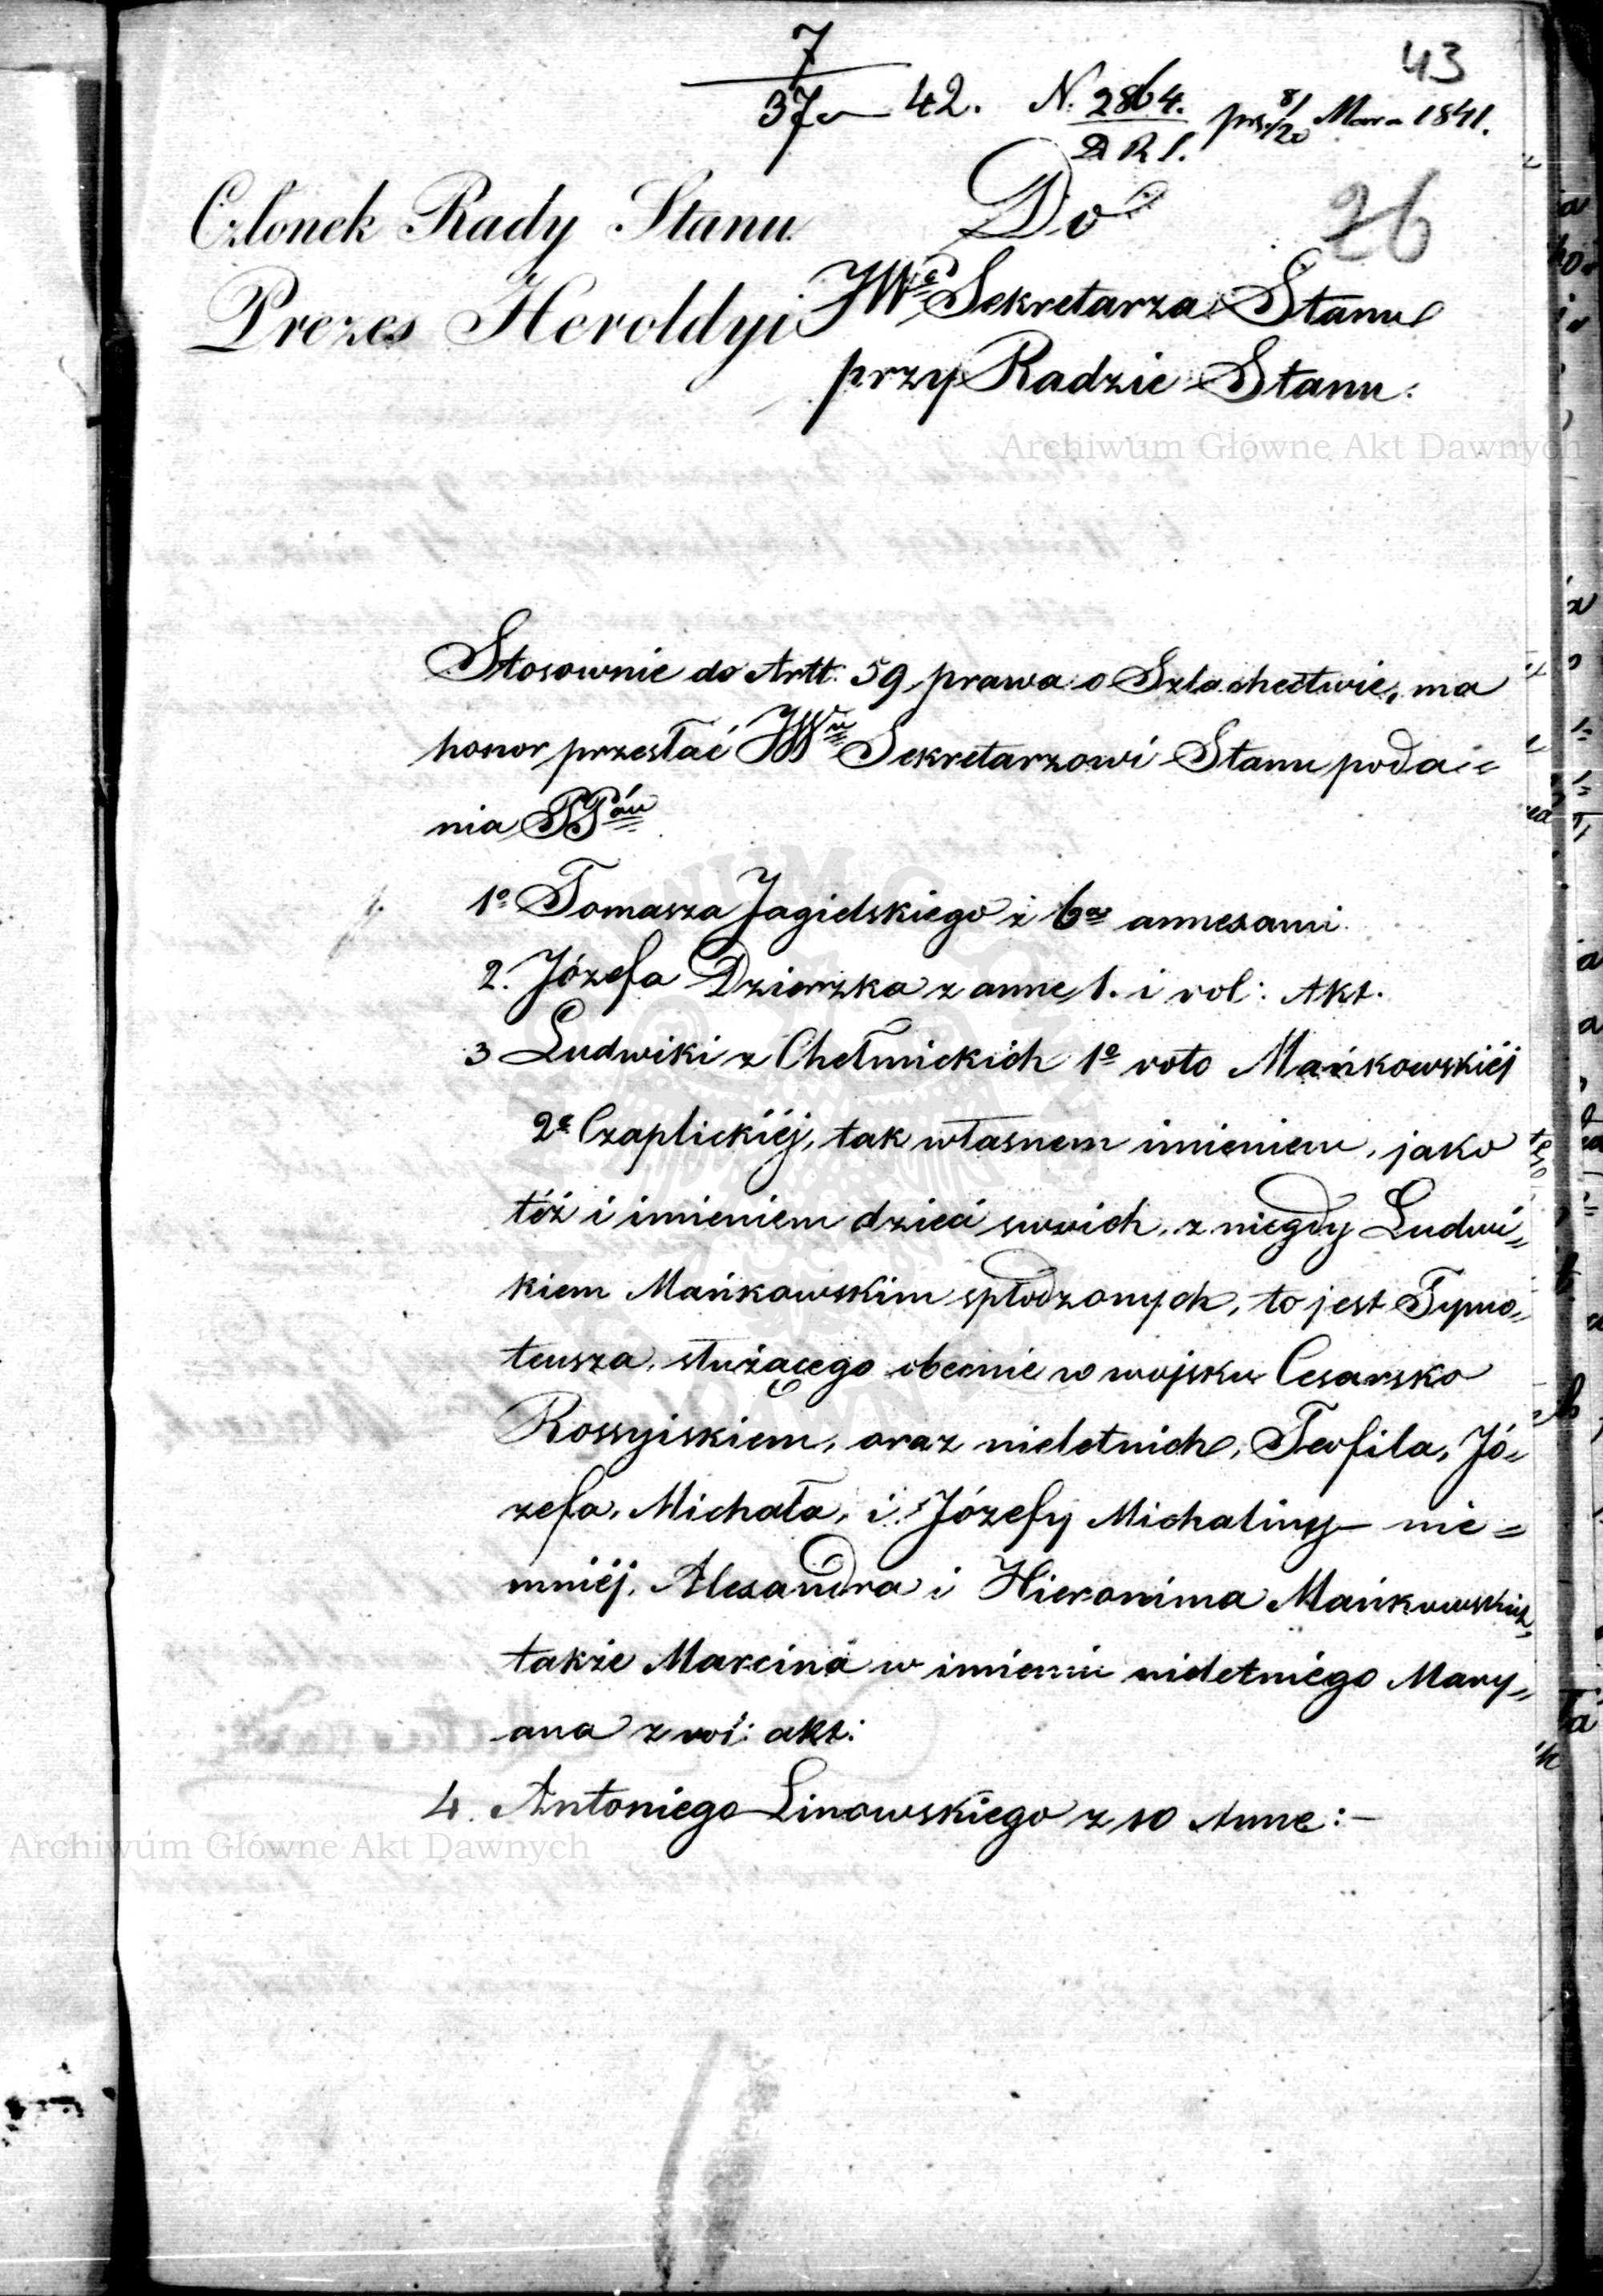 43
7
37 42. N. 2864. prs. 8/20 Marca 1841.
D R S.
26
Członek Rady Stanu
Prezes Heroldyi
Do
JWo Sekretarza Stanu
przy Radzie Stanu.
Archiwum Główne Akt Dawnych
Stosownie do Artt. 59 prawa o Szlachectwie, ma
honor przesłać JWu Sekretarzowi Stanu poda=
nia PPów
1o Tomasza Jagielskiego z 6a annexami.
2. Józefa Dzierzka z annex 1. i vol: Akt.
3 Ludwiki z Chełmickich 1o voto Mańkowskiéj
2o Czaplickiéj, tak własnem imieniem, jako
téż i imieniem dzieci swoich, z niegdy Ludwi=
kiem Mańkowskim spłodzonych, to jest Tymo=
teusza, służącego obecnie w wojsku Cesarsko
Rossyiskiem, oraz nieletnich, Teofila, Jó=
zefa, Michała, i Józefy Michaliny – nie=
mniéj, Alexandra i Hieronima Mańkowskich,
także Marcina w imieniu nieletniego Mary=
ana z vol: akt:
4. Antoniego Linowskiego z 10 Anne:–
Archiwum Główne Akt Dawnych